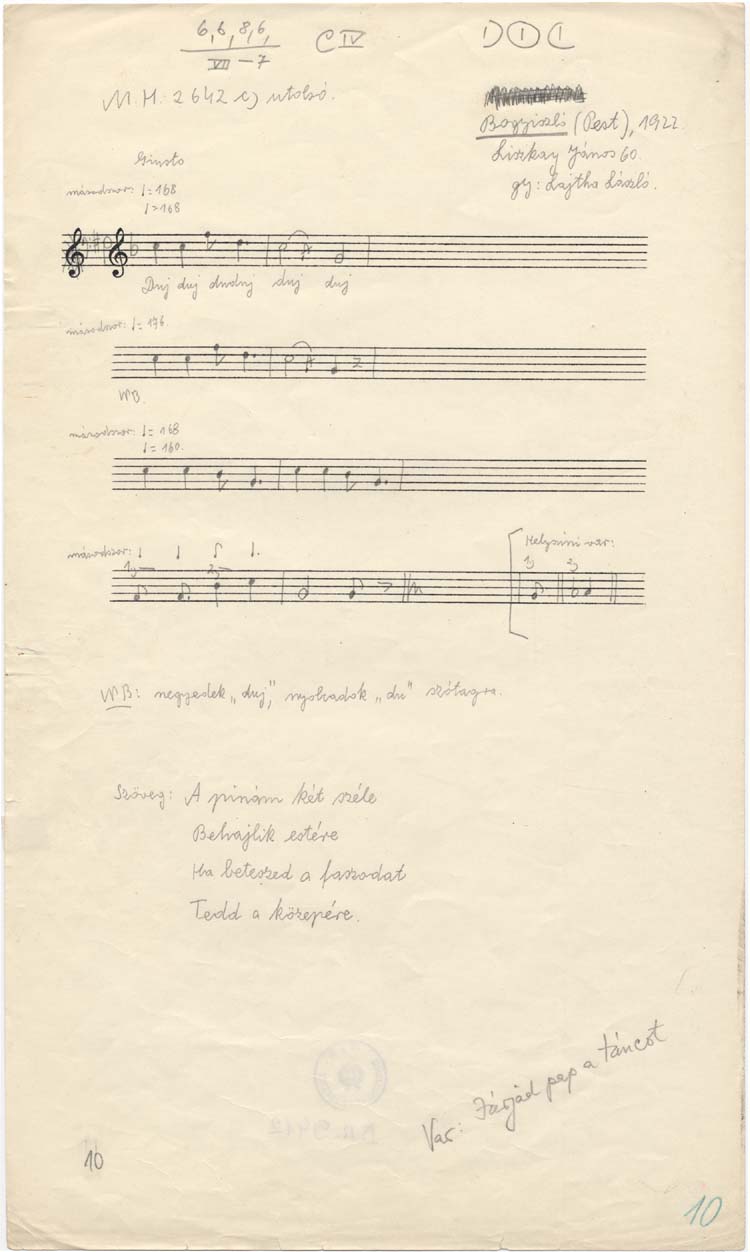 6, 6, 8, 6,
VII - 7
C IV
M. H. 2642 c) utolsó.
Bogyiszló (Pest), 1922.
Liszkay János 60.
gy: Lajtha László.
Giusto
másodszor: ♩=168
♩=168
Duj duj duduj duj duj
másodszor: ♩= 176.
NB.
másodszor: ♩= 168
♩= 160.
másodszor:
1) 2)
Helyszíni var:
1) 2)
NB: negyedek „duj”, nyolcadok „du” szótagra.
Szöveg: A pinám két széle
Behajlik estére
Ha beteszed a faszodat
Tedd a közepére.
Var: Járjad pap a táncot
10
10